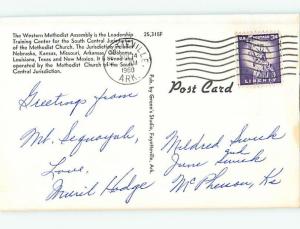 The Western Methodist Assembly is the Leadership
Training Center for the South Central Jurisdiction
of the Methodist Church. The Jurisdiction includes
Nebraska, Kansas, Missouri, Arkansas, Oklahoma,
Louisiana, Texas and New Mexico. It is owned and
operated by the Methodist Church of the South
Central Jurisdiction.
25,315F
1960
ARK.
U.S. POSTAGE 3¢
LIBERTY
Pub. by Greene's Studio, Fayetteville, Ark.
Post Card
Greetings from
Mt. Sequoyah,
Love,
Muril Hodge
Mildred
and
June
McPherson, Ks